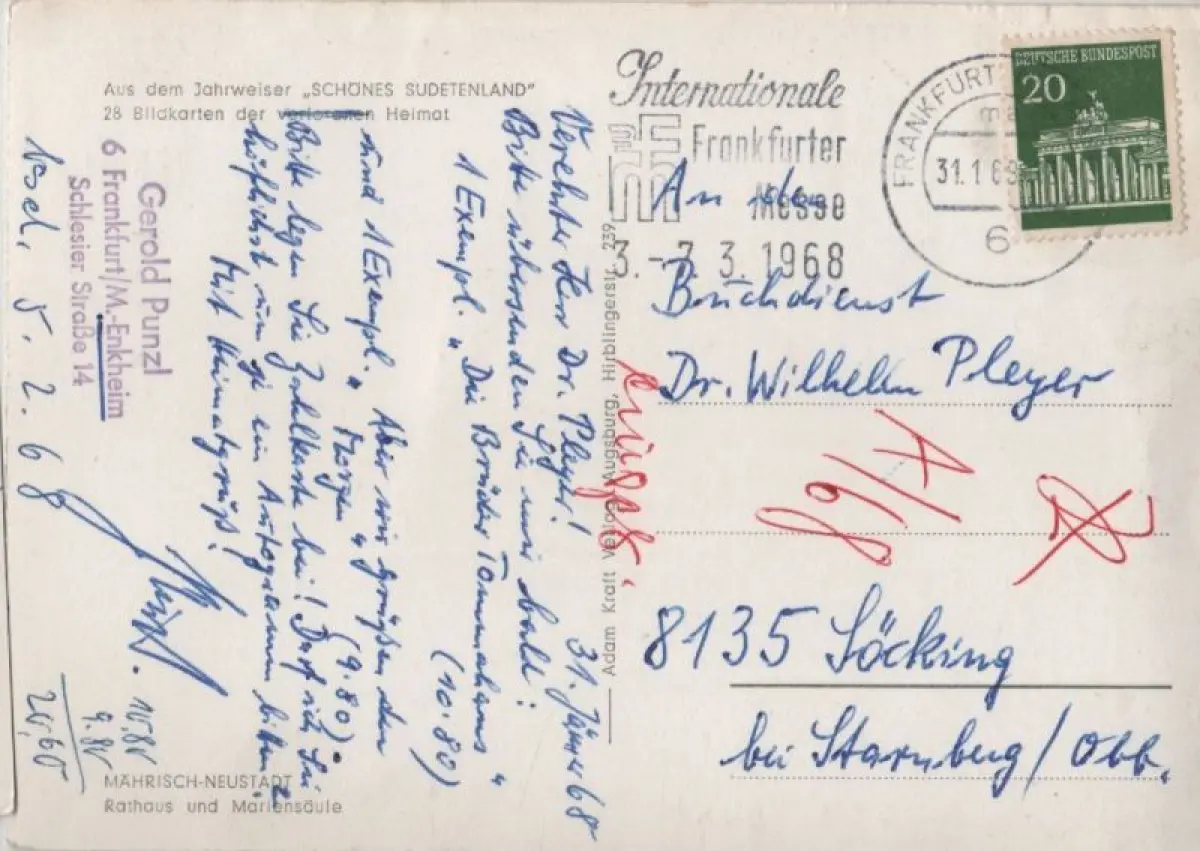 Aus dem Jahrweiser „SCHÖNES SUDETENLAND"
28 Bildkarten der verlorenen Heimat
Gerold Punzl
6 Frankfurt/M.-Enkheim
Schlesier Straße 14
31. Jänner 68
Verehrter Herr Dr. Pleyer!
Bitte übersenden Sie mir bald:
1 Exempl. „Die Brüder Tommahans"
(10.80)
und 1 Exempl. „Aber wir grüßen den
Morgen" (9.80).
Bitte legen Sie Zahlkarte bei! Darf ich Sie
höflichst um ein Autogramm bitten?
Mit Heimatgruß!
5. 2. 68
10,80
9.80
20,60
MÄHRISCH-NEUSTADT
Rathaus und Mariensäule
Adam Kraft Verlag, Augsburg, Hirblingerstr. 239
Internationale
Frankfurter
Messe
3.-7.3.1968
FRANKFURT
31.1.68
6
DEUTSCHE BUNDESPOST
20
An den
Buchdienst
Dr. Wilhelm Pleyer
8135 Söcking
bei Starnberg/Obb.